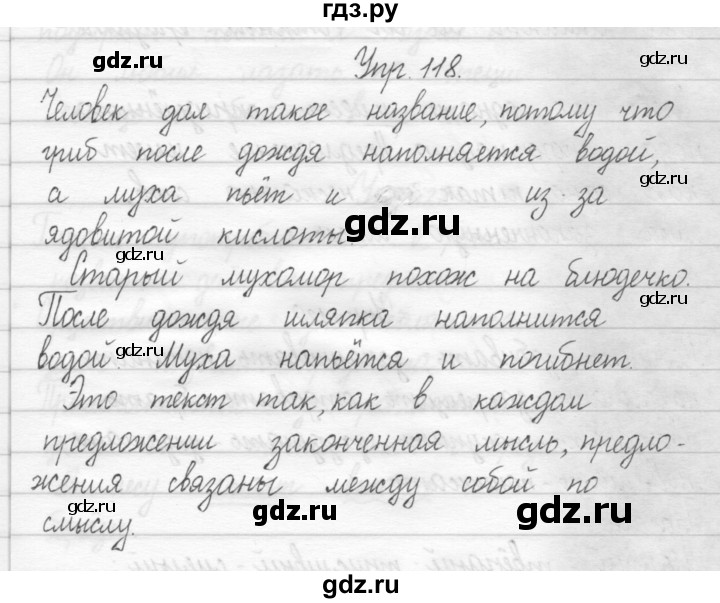 гдз.ру
gdz.ru Упр. 118.
Человек дал такое название, потому что
gdz.ru gdz.ru
гриб после дождя наполняется водой,
gdz.ru
а муха пьёт и из-за
gdz.ru
ядовитой кислоты
gdz.ru
Старый мухомор похож на блюдечко.
gdz.ru
После дождя шляпка наполнится
водой gdz.ru Муха напьётся и погибнет.
gdz.ru
Это текст так, как в каждом
предложении законченная мысль, предло-
жения связаны между собой по
gdz.ru gdz.ru gdz.ru
смыслу.
gdz.ru